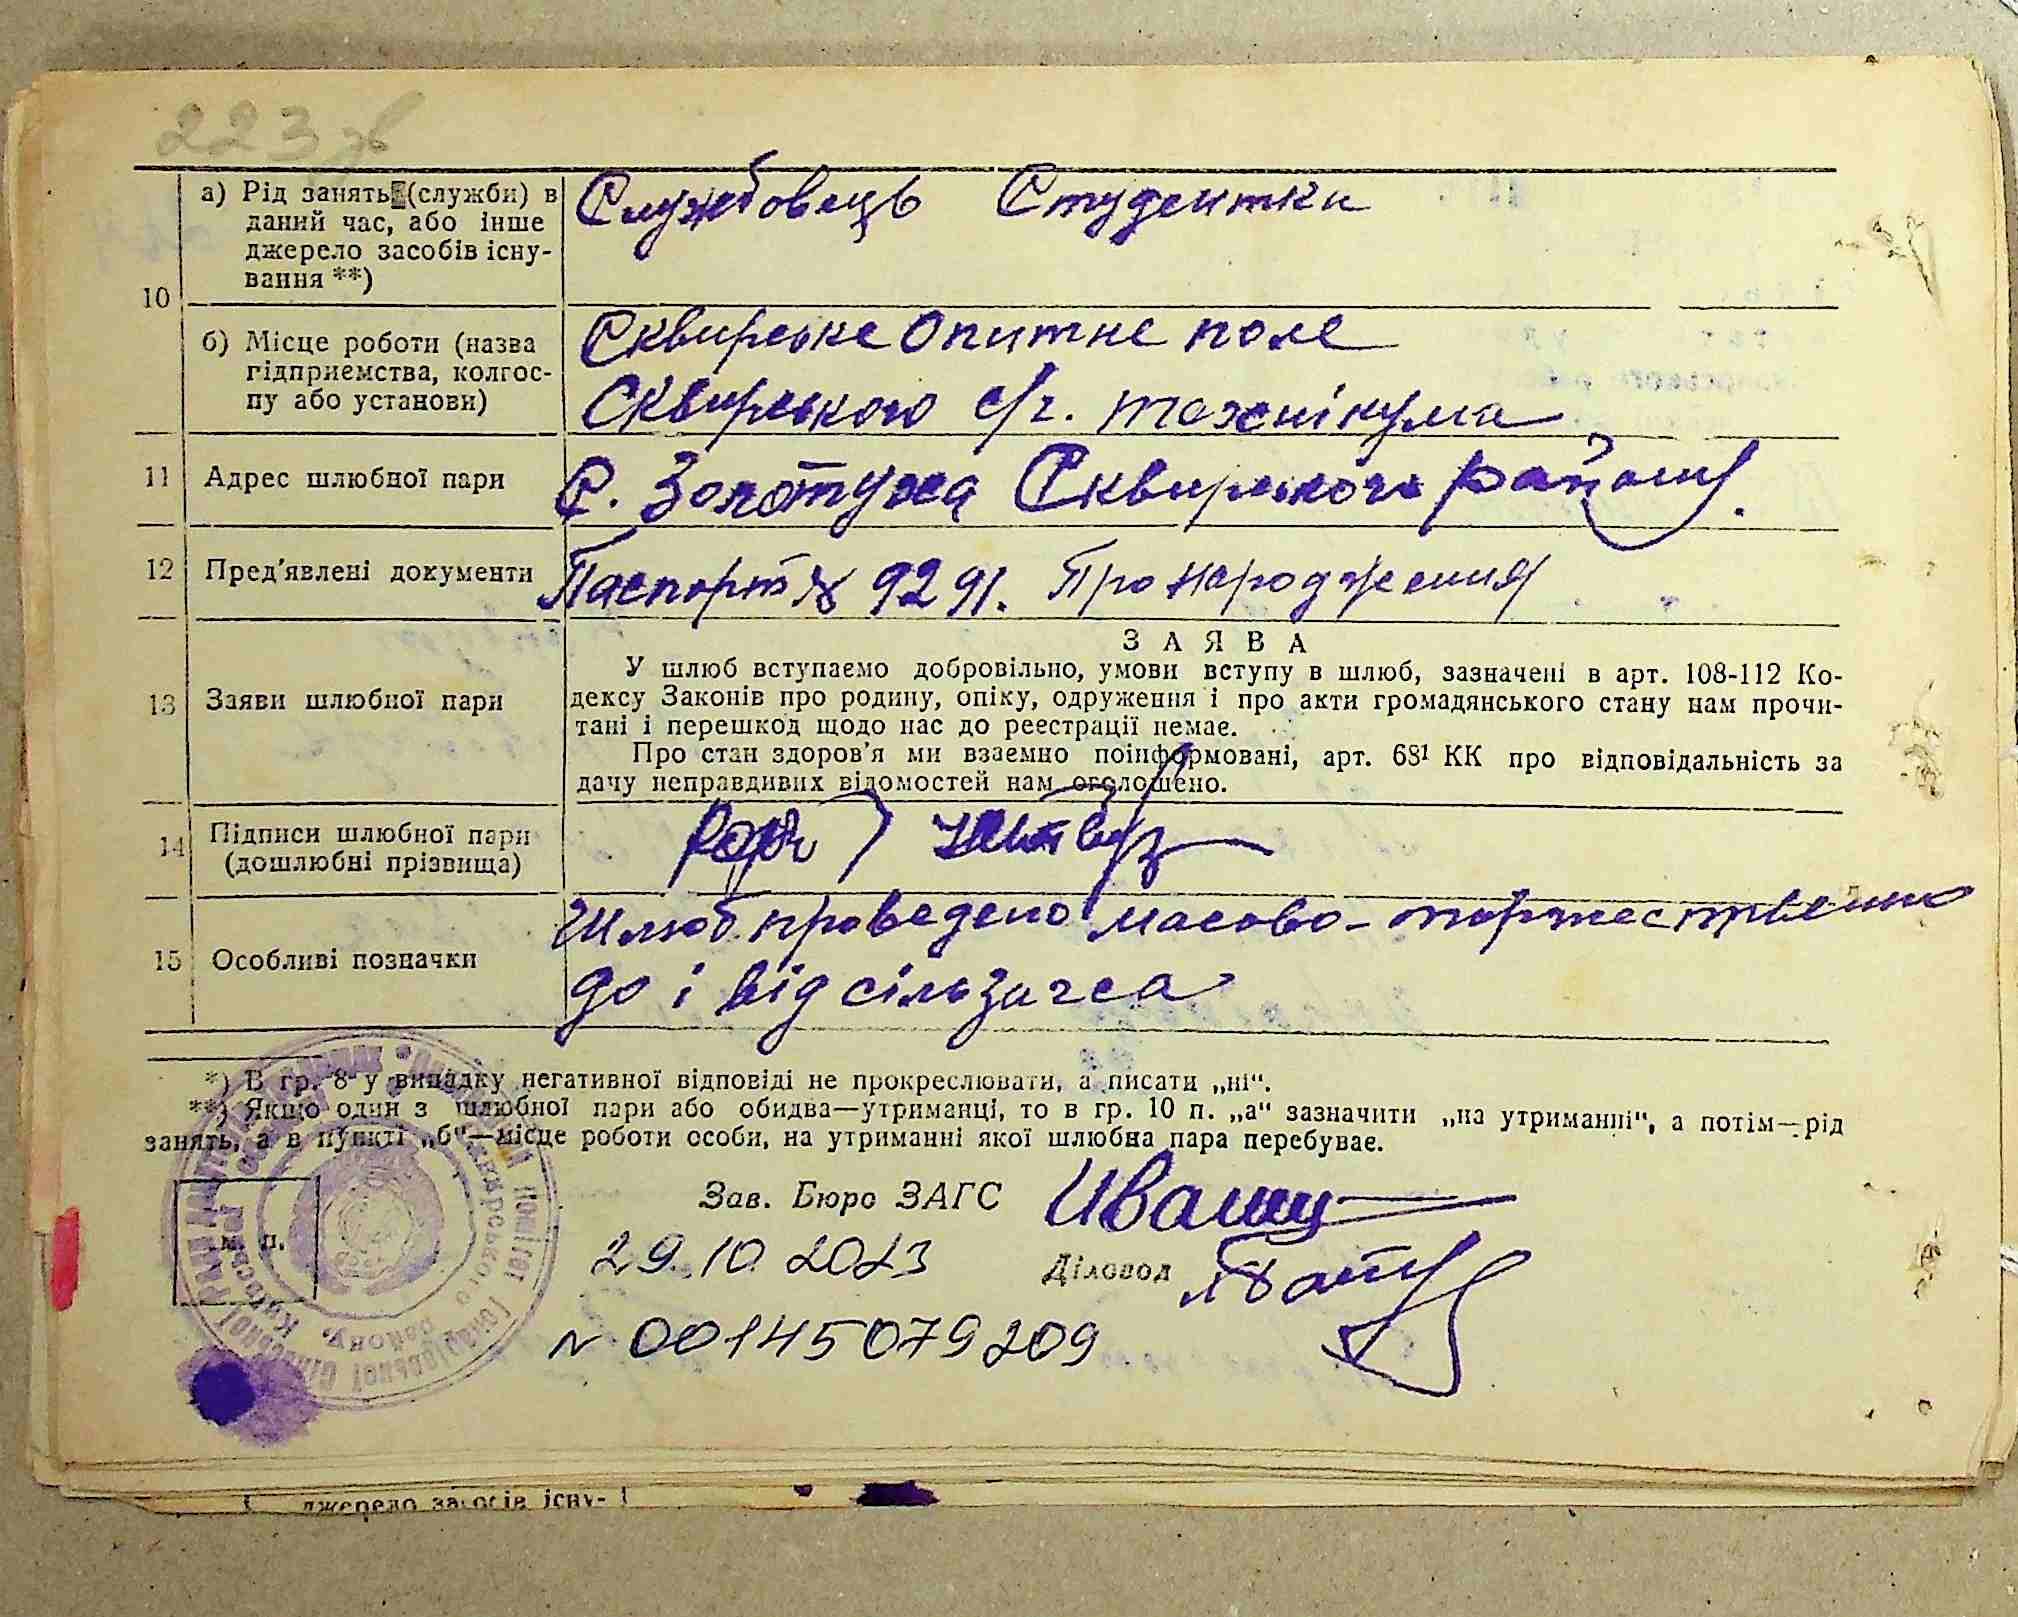 223 зв
а) Рід занять (служби) в
даний час, або інше
джерело засобів існу-
вання **)
Службовець Студентки
10
б) Місце роботи (назва
підприемства, колгос-
пу або установи)
Сквирське Опитне поле
Сквирського с/г. технікума
11 Адрес шлюбної пари
С. Золотуха Сквирського району.
12 Пред'явлені документи
Паспорт № 9291. Про народження
13 Заяви шлюбної пари
ЗАЯВА
У шлюб вступаємо добровільно, умови вступу в шлюб, зазначені в арт. 108-112 Ко-
дексу Законів про родину, опіку, одруження і про акти громадянського стану нам прочи-
тані і перешкод щодо нас до реєстрації немає.
Про стан здоров'я ми взаємно поінформовані, арт. 68¹ КК про відповідальність за
дачу неправдивих відомостей нам оголошено.
14 Підписи шлюбної пари
(дошлюбні прізвища)
15 Особливі позначки
Шлюб проведено масово-торжественно
до і від
*) В гр. 8 у випадку негативної відповіді не прокреслювати, а писати „ні“.
**) Якщо один з шлюбної пари або обидва—утриманці, то в гр. 10 п. „а“ зазначити „на утриманні“, а потім—рід
занять, а в пункті „б“—місце роботи особи, на утриманні якої шлюбна пара перебуває.
м. п.
Зав. Бюро ЗАГС
29.10.2023
Діловод
N 00145079209
джерело засобів існу-